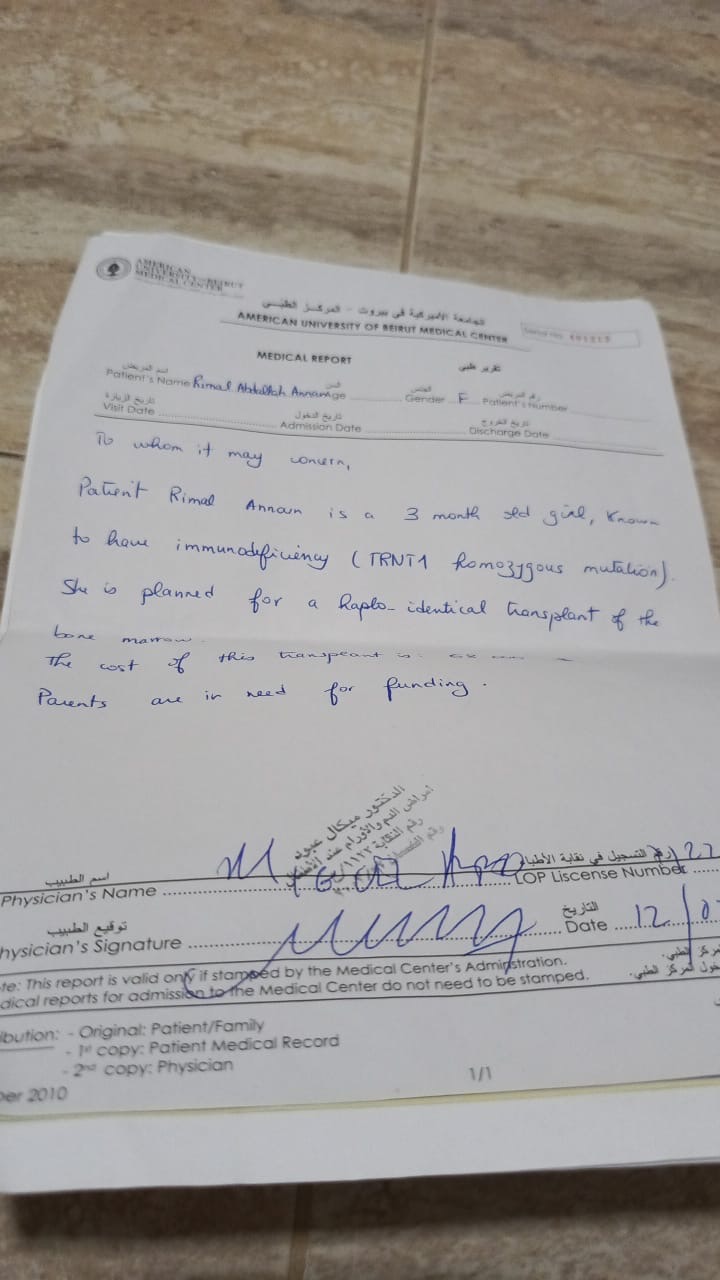 AMERICAN
UNIVERSITY of BEIRUT
MEDICAL CENTER
الجامعة الأميركية في بيروت - المركز الطبي
AMERICAN UNIVERSITY OF BEIRUT MEDICAL CENTER
Serial No.
MEDICAL REPORT تقرير طبي
اسم المريض السن الجنس رقم المريض
Patient's Name Rimal Abdallah Annan Age Gender F Patient's Number
تاريخ الزيارة تاريخ الدخول تاريخ الخروج
Visit Date Admission Date Discharge Date
To whom it may concern,
Patient Rimal Annan is a 3 month old girl, known
to have immunodeficiency (TRNT1 homozygous mutation).
She is planned for a haplo-identical transplant of the
bone marrow.
The cost of this transplant is
Parents are in need for funding.
الدكتور ميكال عبود
أمراض الدم والأورام عند الأطفال
رقم النقابة
رقم
اسم الطبيب رقم التسجيل في نقابة الأطباء
Physician's Name M LOP Liscense Number 22
توقيع الطبيب التاريخ
hysician's Signature Date 12/0
te: This report is valid only if stamped by the Medical Center's Adminstration.
dical reports for admission to the Medical Center do not need to be stamped.
ibution: - Original: Patient/Family
- 1st copy: Patient Medical Record
- 2nd copy: Physician
ber 2010
1/1